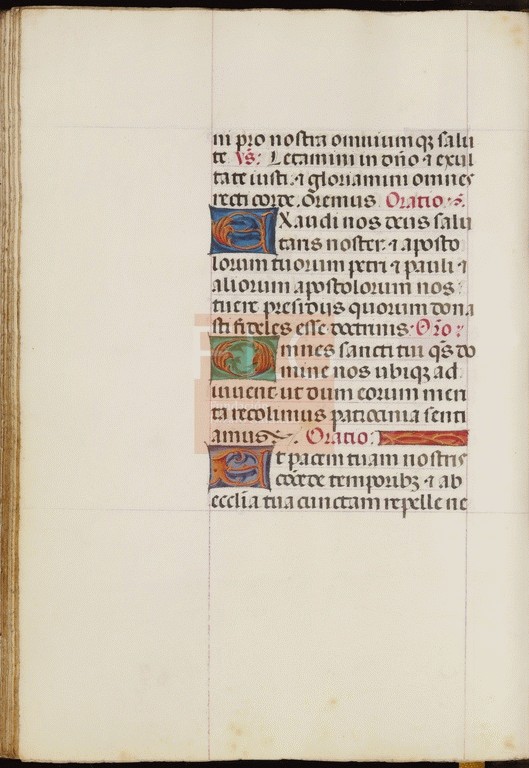 ni pro nostra omnium qz salu
te vs: Letamini in dno ⁊ exul
tate iusti ⁊ gloriamini omnes
recti corde. oremus Oratio: s.
EXaudi nos deus salu
taris noster: ⁊ aposto
lorum tuorum petri ⁊ pauli ⁊
aliorum apostolorum nos
tuere presidiis quorum dona
sti fideles esse doctrinis. Oro:
Omnes sancti tui qs do
mine nos ubiqz ad
iuvent: ut dum eorum meri
ta recolimus patrocinia senti
amus. Oratio:
Et pacem tuam nostris
cõcede temporibz ⁊ ab
ecclia tua cunctam repelle ne